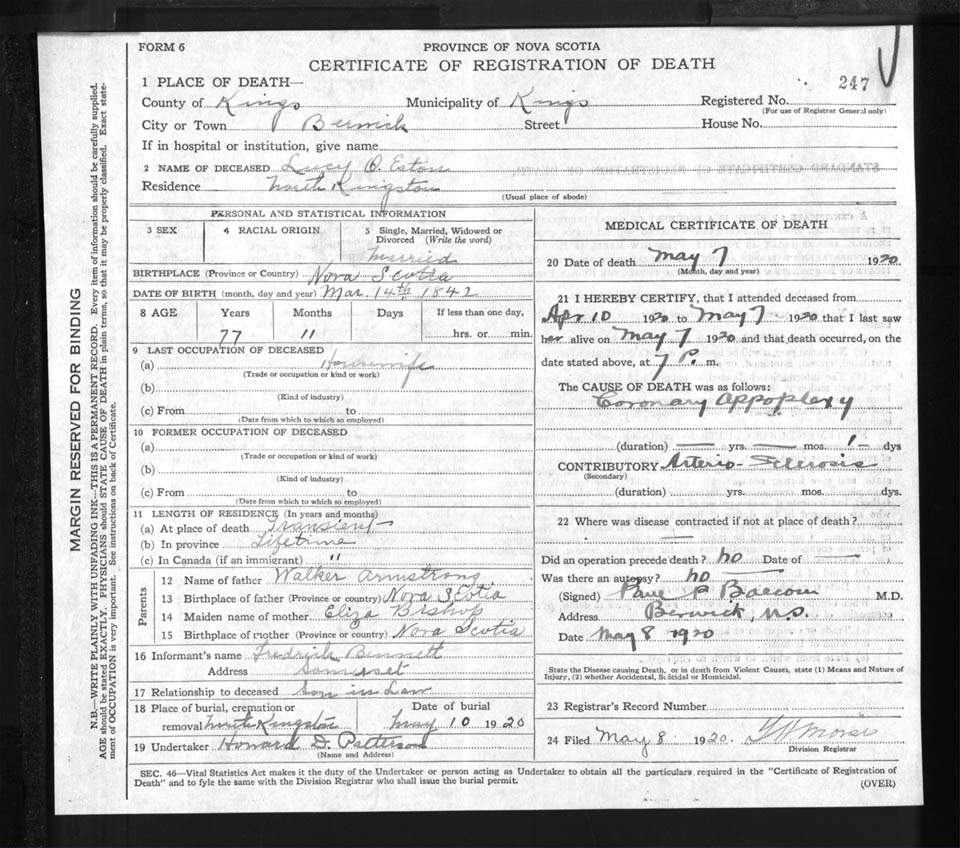 FORM 6
PROVINCE OF NOVA SCOTIA
CERTIFICATE OF REGISTRATION OF DEATH
247
1 PLACE OF DEATH—
County of Kings Municipality of Kings Registered No.
(For use of Registrar General only)
City or Town Berwick Street House No.
If in hospital or institution, give name
2 NAME OF DECEASED Lucy O. Eaton
Residence North Kingston
(Usual place of abode)
PERSONAL AND STATISTICAL INFORMATION
3 SEX 4 RACIAL ORIGIN 5 Single, Married, Widowed or Divorced (Write the word)
Married
BIRTHPLACE (Province or Country) Nova Scotia
DATE OF BIRTH (month, day and year) Mar. 14th 1842
8 AGE Years Months Days If less than one day,
77 11 hrs. or min.
9 LAST OCCUPATION OF DECEASED
(a) Housewife
(Trade or occupation or kind or work)
(b)
(Kind of industry)
(c) From to
(Date from which to which so employed)
10 FORMER OCCUPATION OF DECEASED
(a)
(Trade or occupation or kind of work)
(b)
(Kind of industry)
(c) From to
(Date from which to which so employed)
11 LENGTH OF RESIDENCE (In years and months)
(a) At place of death Transient
(b) In province Lifetime
(c) In Canada (if an immigrant) "
Parents
12 Name of father Walker Armstrong
13 Birthplace of father (Province or country) Nova Scotia
14 Maiden name of mother Eliza Bishop
15 Birthplace of mother (Province or country) Nova Scotia
16 Informant's name Fredrick Bennett
Address Somerset
17 Relationship to deceased Son in Law
18 Place of burial, cremation or Date of burial
removal North Kingston May 10 1920
19 Undertaker Howard D. Patterson
(Name and Address)
MEDICAL CERTIFICATE OF DEATH
20 Date of death May 7 1920
(Month, day and year)
21 I HEREBY CERTIFY, that I attended deceased from
Apr 10 1920 to May 7 1920 that I last saw
her alive on May 7 1920 and that death occurred, on the
date stated above, at 7 P. m.
The CAUSE OF DEATH was as follows:
Coronary Appoplexy
(duration) — yrs. — mos. 1 — dys
CONTRIBUTORY Arterio-Sclerosis
(Secondary)
(duration) yrs. mos. dys.
22 Where was disease contracted if not at place of death?
—
Did an operation precede death? no Date of —
Was there an autopsy? no —
(Signed) P Balcom M.D.
Address Berwick, N.S.
Date May 8 1920
State the Disease causing Death, or in death from Violent Causes, state (1) Means and Nature of
Injury, (2) whether Accidental, Suicidal or Homicidal.
23 Registrar's Record Number
24 Filed May 8 1920. Morse
Division Registrar
SEC. 46—Vital Statistics Act makes it the duty of the Undertaker or person acting as Undertaker to obtain all the particulars required in the "Certificate of Registration of
Death" and to fyle the same with the Division Registrar who shall issue the burial permit.
(OVER)
MARGIN RESERVED FOR BINDING
N.B.—WRITE PLAINLY WITH UNFADING INK—THIS IS A PERMANENT RECORD. Every item of information should be carefully supplied.
AGE should be stated EXACTLY. PHYSICIANS should STATE CAUSE OF DEATH in plain terms, so that it may be properly classified. Exact state-
ment of OCCUPATION is very important. See instructions on back of Certificate.